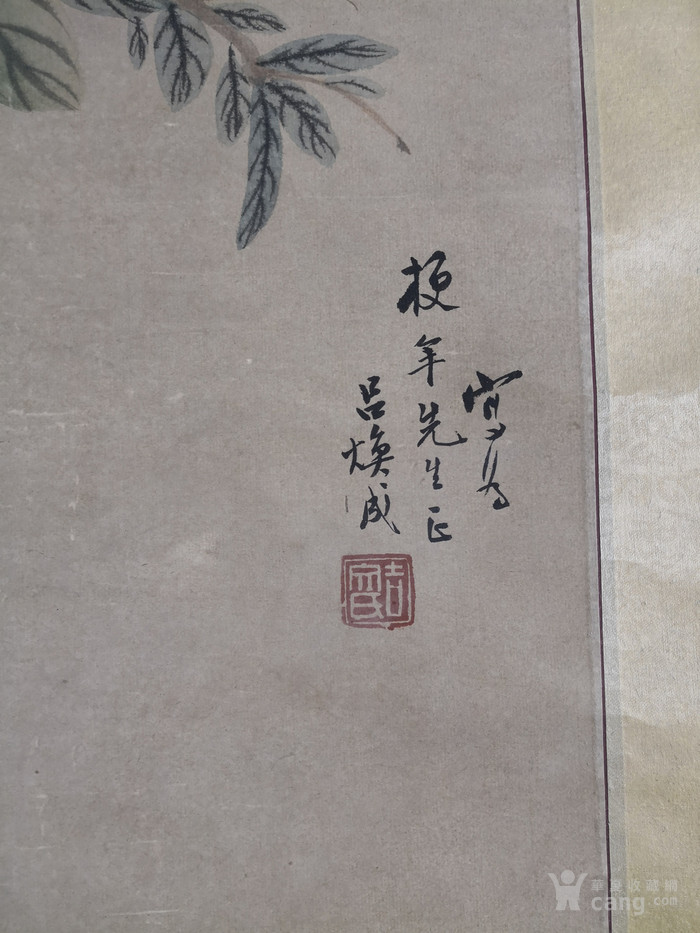 寫為
梗年先生正
吕焕成
華夏收藏網
cang.com